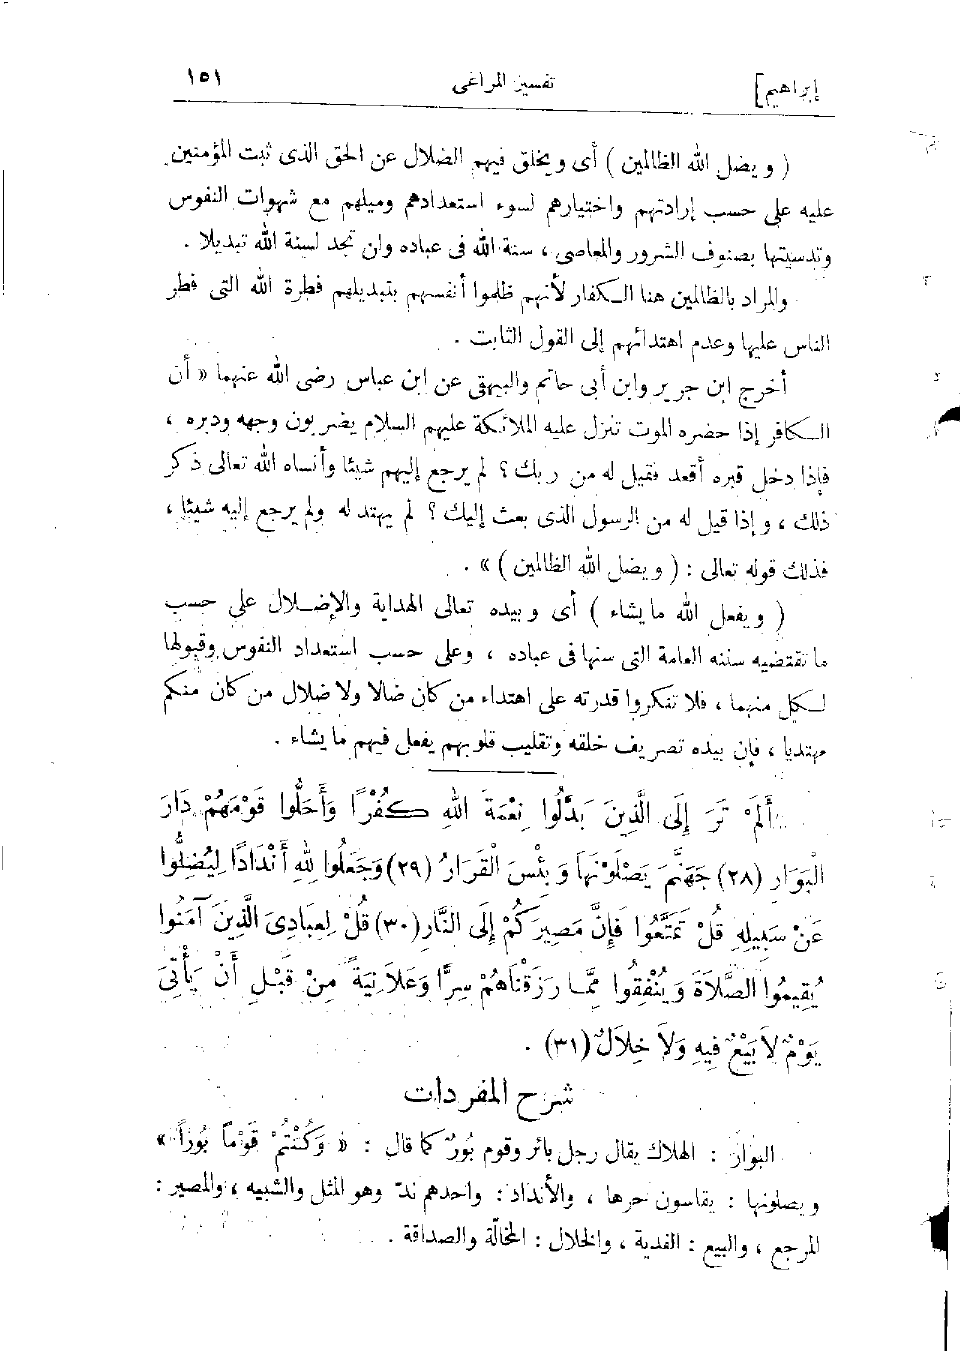 إبراهيم] تفسير المراغى ١٥١
( ويضل الله الظالمين ) أى ويخلق فيهم الضلال عن الحق الذى ثبت المؤمنين
عليه على حسب إرادتهم واختيارهم لسوء استعدادهم وميلهم مع شهوات النفوس
وتدسيتها بصنوف الشرور والمعاصى ، سنة الله فى عباده ولن تجد لسنة الله تبديلا .
والمراد بالظالمين هنا الكفار لأنهم ظلموا أنفسهم بتبديلهم فطرة الله التى فطر
الناس عليها وعدم اهتدائهم إلى القول الثابت .
أخرج ابن جرير وابن أبى حاتم والبيهقى عن ابن عباس رضى الله عنهما « أن
الكافر إذا حضره الموت تنزل عليه الملائكة عليهم السلام يضربون وجهه ودبره ،
فإذا دخل قبره أقعد فقيل له من ربك ؟ لم يرجع إليهم شيئا وأنساه الله تعالى ذكر
ذلك ، وإذا قيل له من الرسول الذى بعث إليك ؟ لم يهتد له ولم يرجع إليه شيئا ،
فذلك قوله تعالى : ( ويضل الله الظالمين ) » .
( ويفعل الله ما يشاء ) أى وبيده تعالى الهداية والإضلال على حسب
ما تقتضيه سننه العامة التى سنها فى عباده ، وعلى حسب استعداد النفوس وقبولها
لكل منهما ، فلا تنكروا قدرته على اهتداء من كان ضالا ولا ضلال من كان منكم
مهتديا ، فإن بيده تصريف خلقه وتقليب قلوبهم يفعل فيهم ما يشاء .
أَلَمْ تَرَ إِلَى الَّذِينَ بَدَّلُوا نِعْمَةَ اللهِ كُفْرًا وَأَحَلُّوا قَوْمَهُمْ دَارَ
الْبَوَارِ (٢٨) جَهَنَّمَ يَصْلَوْنَهَا وَبِئْسَ الْقَرَارُ (٢٩) وَجَعَلُوا لِلهِ أَنْدَادًا لِيُضِلُّوا
عَنْ سَبِيلِهِ قُلْ تَمَتَّعُوا فَإِنَّ مَصِيرَكُمْ إِلَى النَّارِ (٣٠) قُلْ لِعِبَادِىَ الَّذِينَ آمَنُوا
يُقِيمُوا الصَّلَاةَ وَيُنْفِقُوا مِمَّا رَزَقْنَاهُمْ سِرًّا وَعَلَانِيَةً مِنْ قَبْلِ أَنْ يَأْتِىَ
يَوْمٌ لَا بَيْعٌ فِيهِ وَلَا خِلَالٌ (٣١) .
شرح المفردات
البوار : الهلاك يقال رجل بائر وقوم بُورٌ كما قال : « وَكُنْتُمْ قَوْمًا بُورًا »
ويصلونها : يقاسون حرها ، والأنداد : واحدهم ندّ وهو المثل والشبيه ، والمصير :
المرجع ، والبيع : الفدية ، والخلال : المخالّة والصداقة .